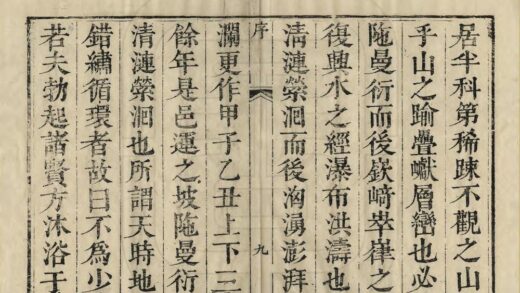 居半科第稀踈不觀之山
乎山之踰疊巘層巒也必
陁曼衍而後嶔崎崒嵂之
復興水之經瀑布洪濤也
清漣縈洄而後洶湧澎湃
序 九
瀾更作甲子乙丑上下三
餘年是邑運之坡陁曼衍
清漣縈洄也所謂天時地
錯繡循環者故曰不爲少
若夫勃起諸賢方沐浴于